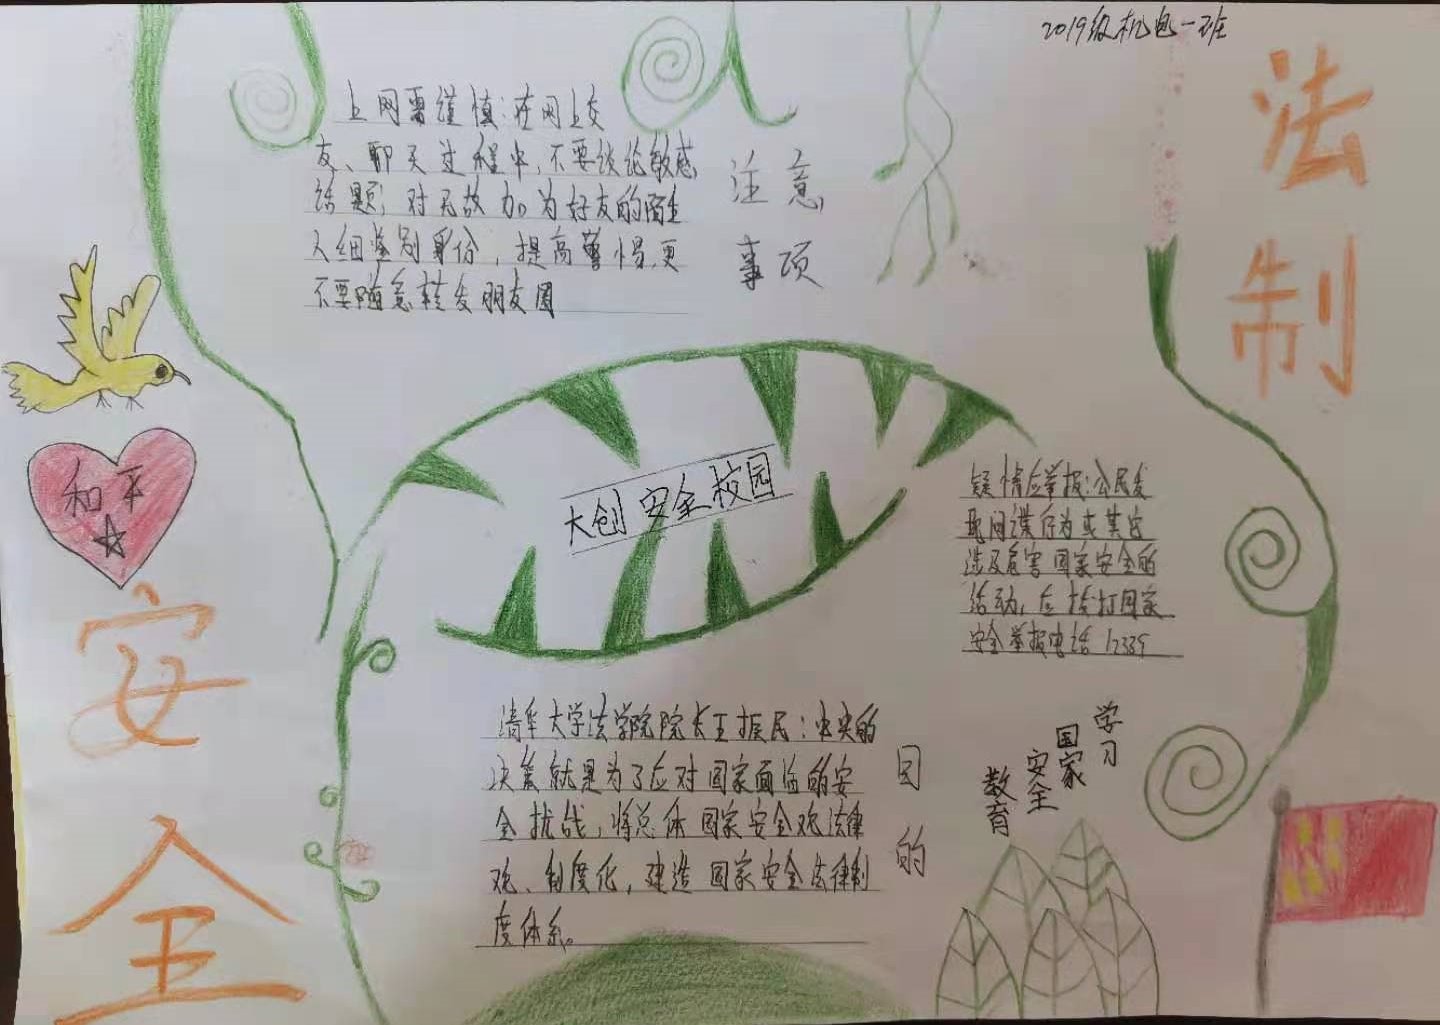 2019级机电一班
法制
上网需谨慎:在网上交
友、聊天过程中,不要谈论敏感
话题;对无故加为好友的陌生
人细鉴别身份,提高警惕,更
不要随意转发朋友圈
注意
事项
和平
大创安全校园
疑情应举报:公民发
现间谍行为或其它
涉及危害国家安全的
活动,应拨打国家
安全举报电话12339
安全
清华大学法学院院长王振民:中央的
决策就是为了应对国家面临的安
全挑战,将总体国家安全观法律
观、制度化,建造国家安全法律制
度体系。
目的
学习
国家
安全
教育